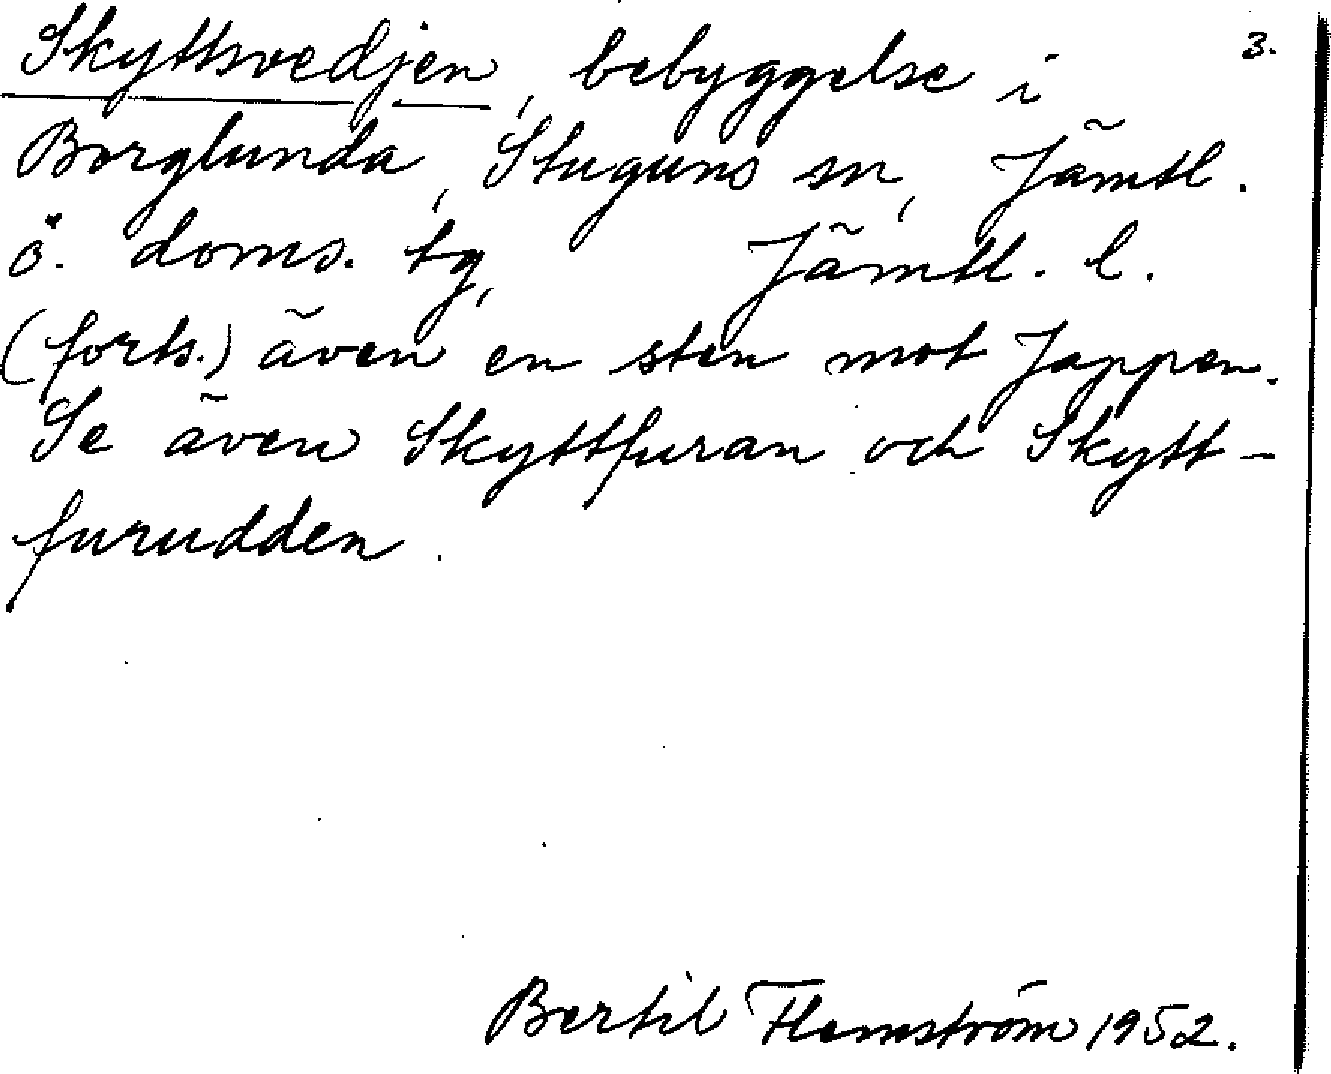 Skyttsvedjen, bebyggelse i 3.
Borglunda, Stuguns sn, Jämtl.
ö. doms. tg, Jämtl. l.
(forts.) även en sten mot Jappen.
Se även Skyttfuran och Skytt-
furudden.
Bertil Flemström 1952.